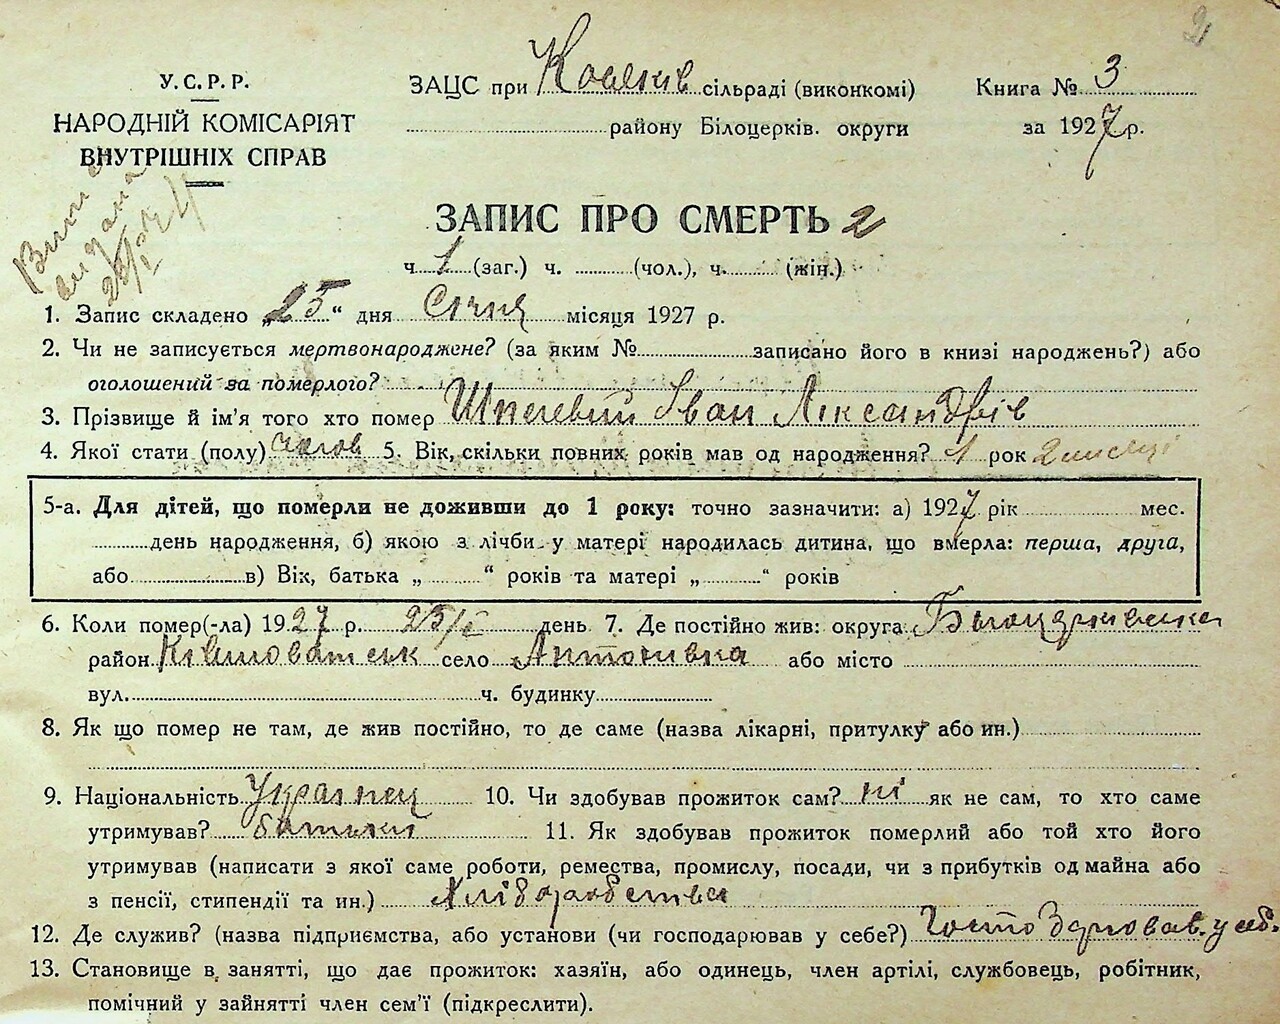 2
У.С.Р.Р.
НАРОДНІЙ КОМІСАРІЯТ
ВНУТРІШНІХ СПРАВ
ЗАЦС при сільраді (виконкомі)
району Білоцерків. округи
Книга № 3
за 1927 р.
видана
ЗАПИС ПРО СМЕРТЬ 2
ч. 1 (заг.) ч. (чол.), ч. (жін.)
1. Запис складено „25“ дня Січня місяця 1927 р.
2. Чи не записується мертвонароджене? (за яким № записано його в книзі народжень?) або
оголошений за померлого?
3. Прізвище й ім'я того хто помер Іван Аліксандрів
4. Якої стати (полу) чолов 5. Вік, скільки повних років мав од народження? 1 рок 2 місяці
5-а. Для дітей, що померли не доживши до 1 року: точно зазначити: а) 1927 рік мес.
день народження, б) якою з лічби у матері народилась дитина, що вмерла: перша, друга,
або в) Вік, батька „ “ років та матері „ “ років
6. Коли помер(-ла) 1927 р. 25/I день 7. Де постійно жив: округа
район село Антонівка або місто
вул. ч. будинку
8. Як що помер не там, де жив постійно, то де саме (назва лікарні, притулку або ин.)
9. Національність Українец 10. Чи здобував прожиток сам? ні як не сам, то хто саме
утримував? батьки 11. Як здобував прожиток померлий або той хто його
утримував (написати з якої саме роботи, ремества, промислу, посади, чи з прибутків од майна або
з пенсії, стипендії та ин.) Хліборобства
12. Де служив? (назва підприємства, або установи (чи господарював у себе?)
13. Становище в занятті, що дає прожиток: хазяїн, або одинець, член артілі, службовець, робітник,
помічний у зайнятті член сем'ї (підкреслити).